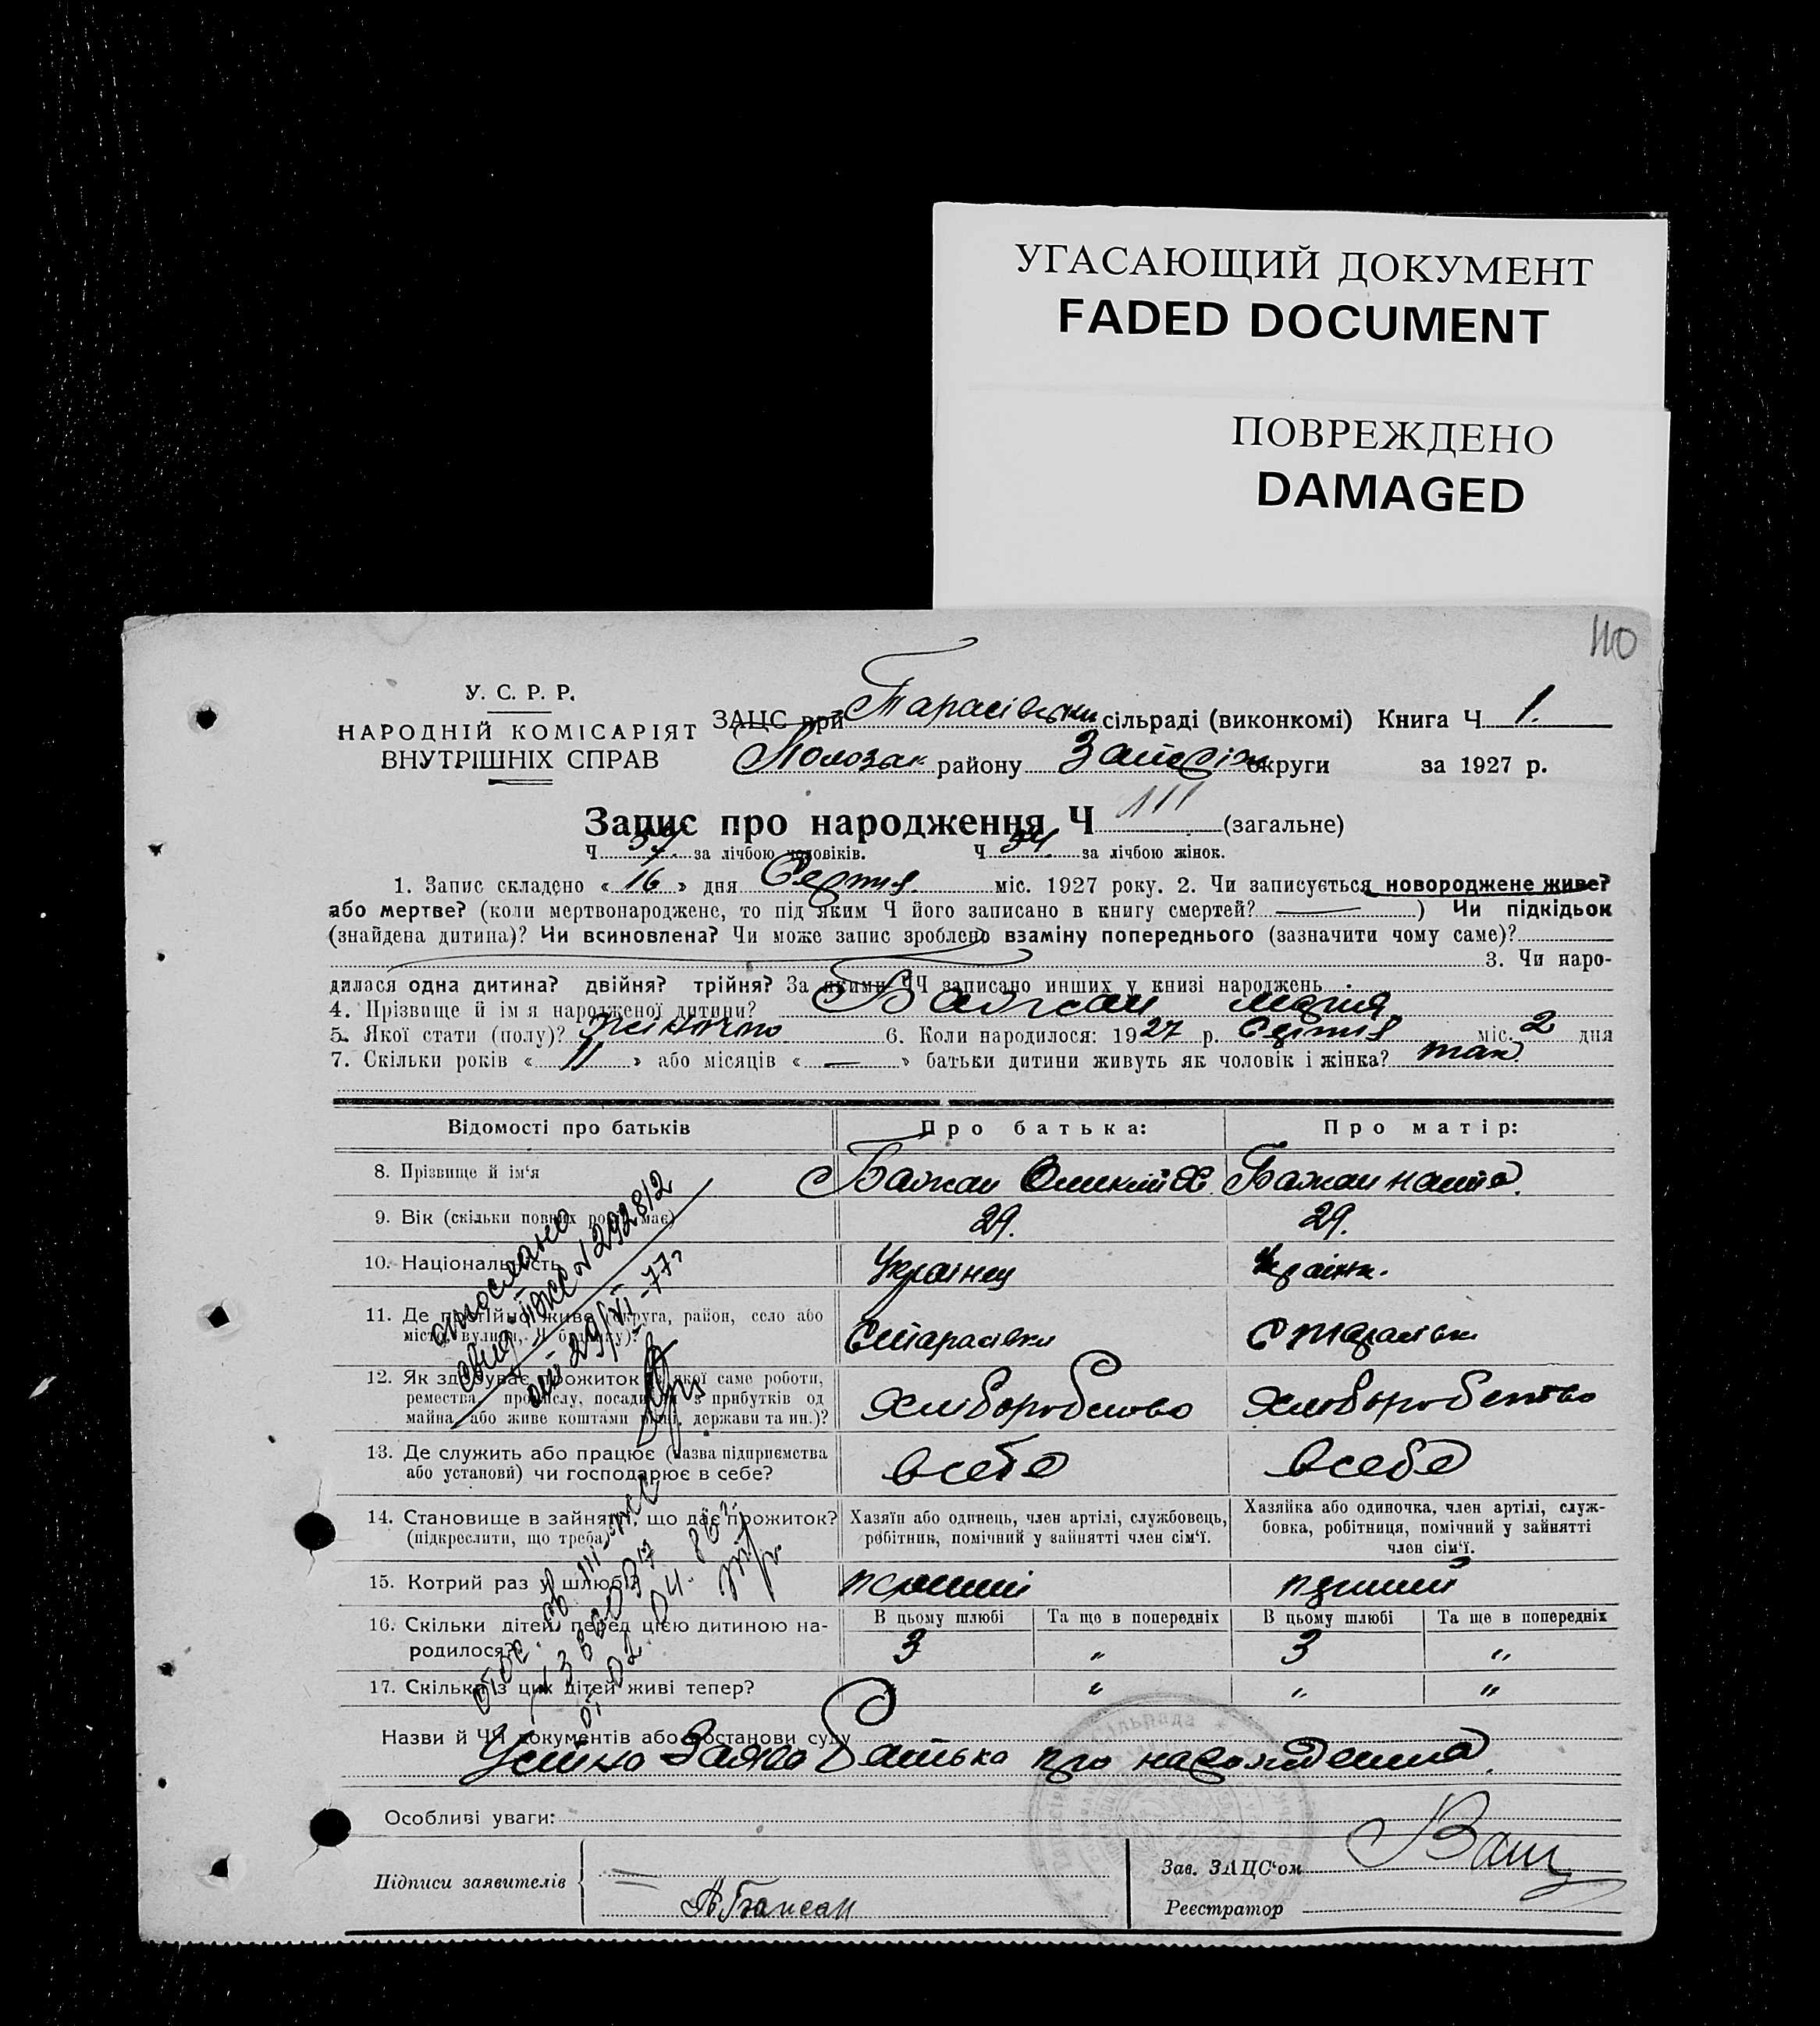 УГАСАЮЩИЙ ДОКУМЕНТ
FADED DOCUMENT
ПОВРЕЖДЕНО
DAMAGED
110
У. С. Р. Р.
НАРОДНІЙ КОМІСАРІЯТ
ВНУТРІШНІХ СПРАВ
ЗАЦС при Тарасівськи сільраді (виконкомі) Книга Ч 1.
району округи за 1927 р.
Запис про народження Ч 111 (загальне)
Ч 57. за лічбою чоловіків. Ч 54. за лічбою жінок.
1. Запис складено « 16 » дня Серпня. міс. 1927 року. 2. Чи записується новороджене живе?
або мертве? (коли мертвонароджене, то під яким Ч його записано в книгу смертей? —) Чи підкідьок
(знайдена дитина)? Чи всиновлена? Чи може запис зроблено взаміну попереднього (зазначити чому саме)?
3. Чи наро-
дилася одна дитина? двійня? трійня? За якими ЧЧ записано инших у книзі народжень
4. Прізвище й ім я народженої дитини? Бажан Мария
5. Якої стати (полу)? Жіночто 6. Коли народилося: 1927 р. Серпня міс. 2 дня
7. Скільки років « 11 » або місяців « — » батьки дитини живуть як чоловік і жінка? так.
Відомості про батьків Про батька: Про матір:
8. Прізвище й ім‘я Бажан Бажан
9. Вік (скільки повних років має) 29. 29.
10. Національність Українец Українк.
11. Де постійно живе (округа, район, село або
місто, вулиця, Ч будинку)? С Тарасівки С Тарасівки
12. Як здобуває прожиток з якої саме роботи,
ремества, промислу, посади, чи з прибутків од
майна, або живе коштами рідні, держави та ин.)? Хліборобство Хліборобство
13. Де служить або працює (назва підприємства
або установи) чи господарює в себе? в себе в себе
14. Становище в зайнятті, що дає прожиток?
(підкреслити, що треба) Хазяїн або одинець, член артілі, службовець,
робітник, помічний у зайнятті член сім‘ї.
Хазяйка або одиночка, член артілі, служ-
бовка, робітниця, помічний у зайнятті
член сім‘ї.
15. Котрий раз у шлюбі? перший перший
16. Скільки дітей перед цією дитиною на-
родилося? В цьому шлюбі Та ще в попередніх В цьому шлюбі Та ще в попередніх
3 „ 3 „
17. Скільки із цих дітей живі тепер? „ „ „ „
Назви й ЧЧ документів або постанови суду
Устно Заява Батько про народження.
Особливі уваги:
Підписи заявителів А Бажан
Зав. ЗАЦС‘ом
Реєстратор
от 29/VI-77г